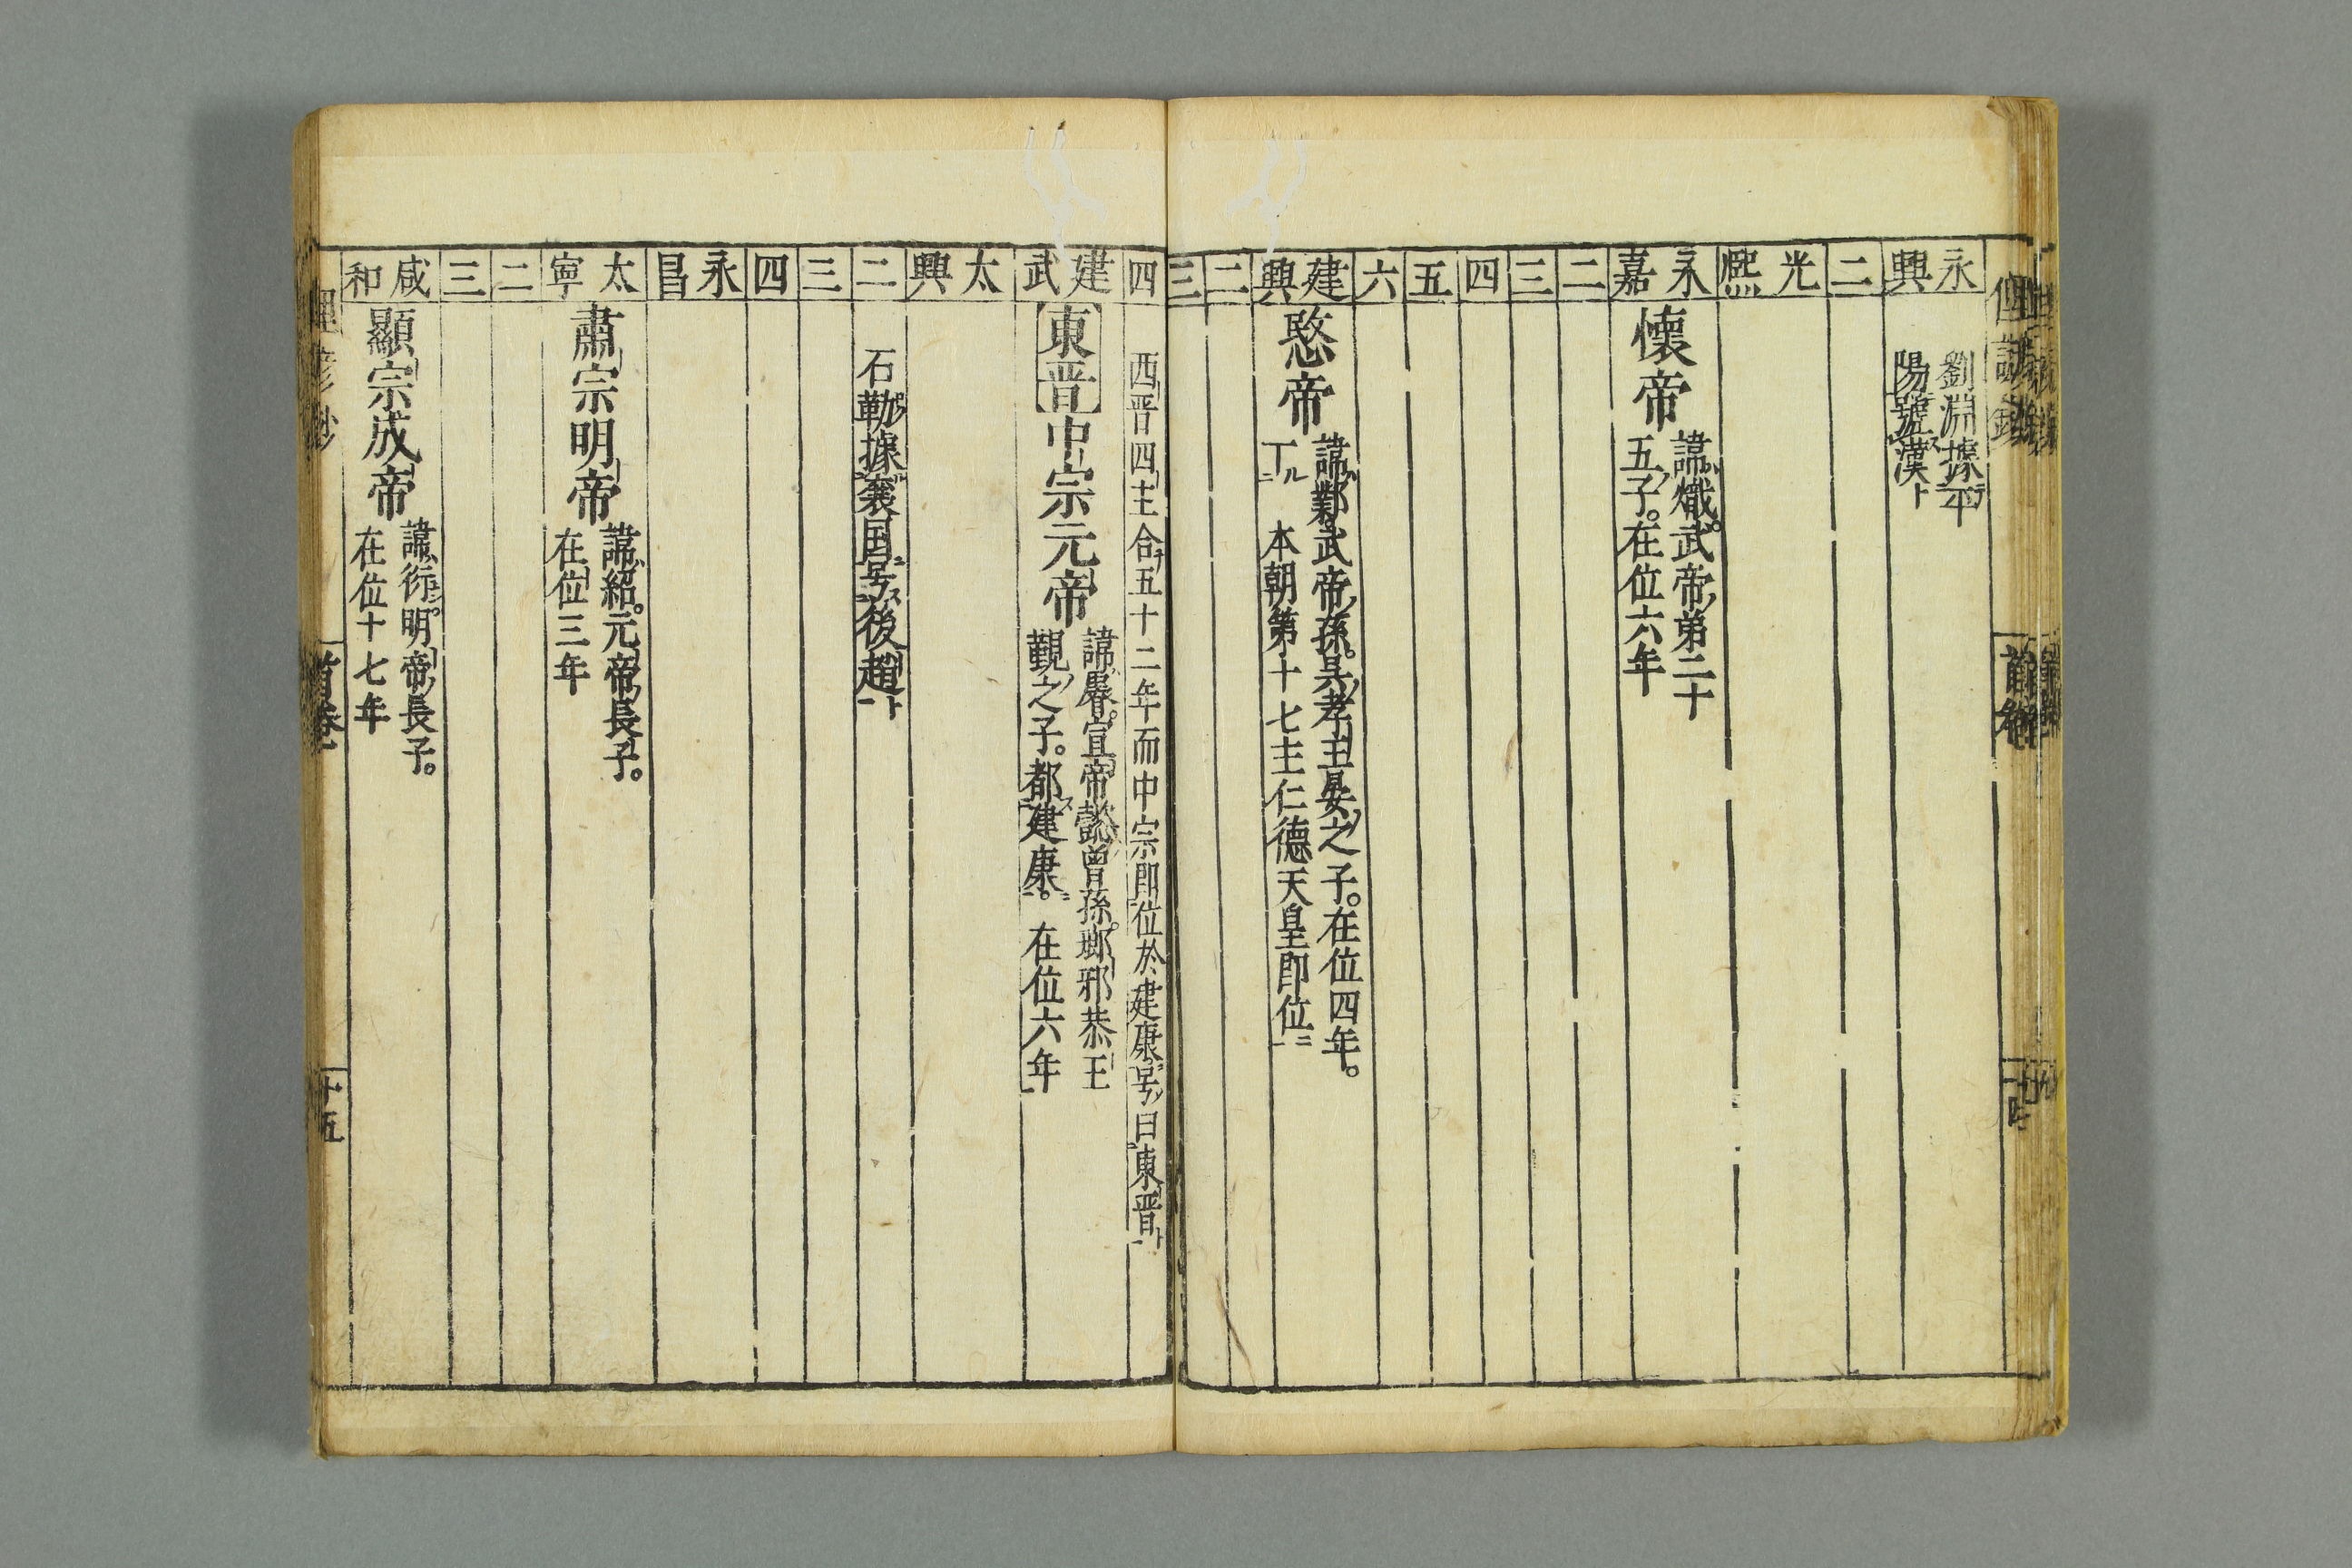 永興
劉淵據平
陽號漢ト
二
光熙
永嘉
懷帝
諱熾。武帝ノ第二十
五子。在位六年
二
三
四
五
六
建興
愍帝
諱鄴武帝ノ孫。吳ノ孝王晏ノ之子。在位四年。
丁ル二 本朝第十七主仁德天皇即位ニ一
二
三
四
西晋四主合テ五十二年而中宗即位於建康号ノ曰東晋ト
建武
東晋中宗元帝
諱睿。宣帝懿曾孫。瑯邪恭王
覲ノ之子。都ス建康ニ。 在位六年
太興
二
石勒據襄国ニ号ス後趙ト
三
四
永昌
太寧
肅宗明帝
諱紹。元帝ノ長子。
在位三年
二
三
咸和
顯宗成帝
諱衍。明帝ノ長子。
在位十七年
首卷
十五